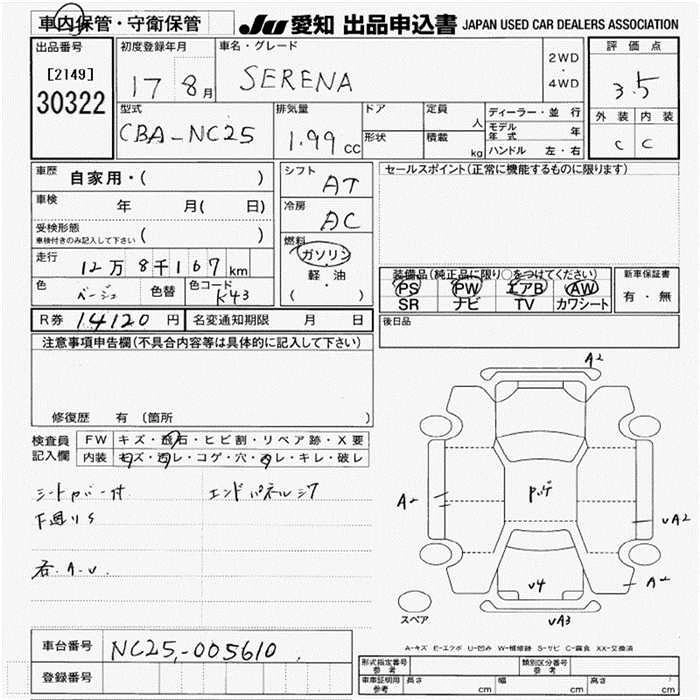 車内保管・守衛保管
JU 愛知 出品申込書 JAPAN USED CAR DEALERS ASSOCIATION
出品番号
[2149]
30322
初度登録年月
17 8月
車名・グレード
SERENA
2WD
・
4WD
評価点
3.5
外装 内装
C C
型式
CBA-NC25
排気量
1.99 cc
ドア
形状
定員
人
積載
kg
ディーラー・並行
モデル年式 年
ハンドル 左・右
車歴
自家用・( )
車検
年 月( 日)
受検形態
車検付きのみ記入して下さい ( )
走行
12万8千167km
色
ベージュ
色替
色コード
K43
シフト
AT
冷房
AC
燃料
ガソリン
・
軽油
( )
セールスポイント(正常に機能するものに限ります)
装備品(純正品に限り○をつけてください)
PS PW エアB AW
SR ナビ TV カワシート
新車保証書
有・無
後日品
R券 14120円 名変通知期限 月 日
注意事項申告欄(不具合内容等は具体的に記入して下さい)
修復歴 有 (箇所 )
検査員
記入欄
FW キズ・飛石・ヒビ割・リペア跡・X要
内装 キズ・汚レ・コゲ・穴・スレ・キレ・破レ
エンドパネルシワ
下廻りS
A2
A2
UA2
A2
v4
UA3
スペア
A-キズ E-エクボ U-凹み W-補修跡 S-サビ C-腐食 XX-交換済
車台番号 NC25-005610
登録番号
型式指定番号
参考
類別区分番号
参考
車庫証明用
参考
長さ cm 幅 cm 高さ cm